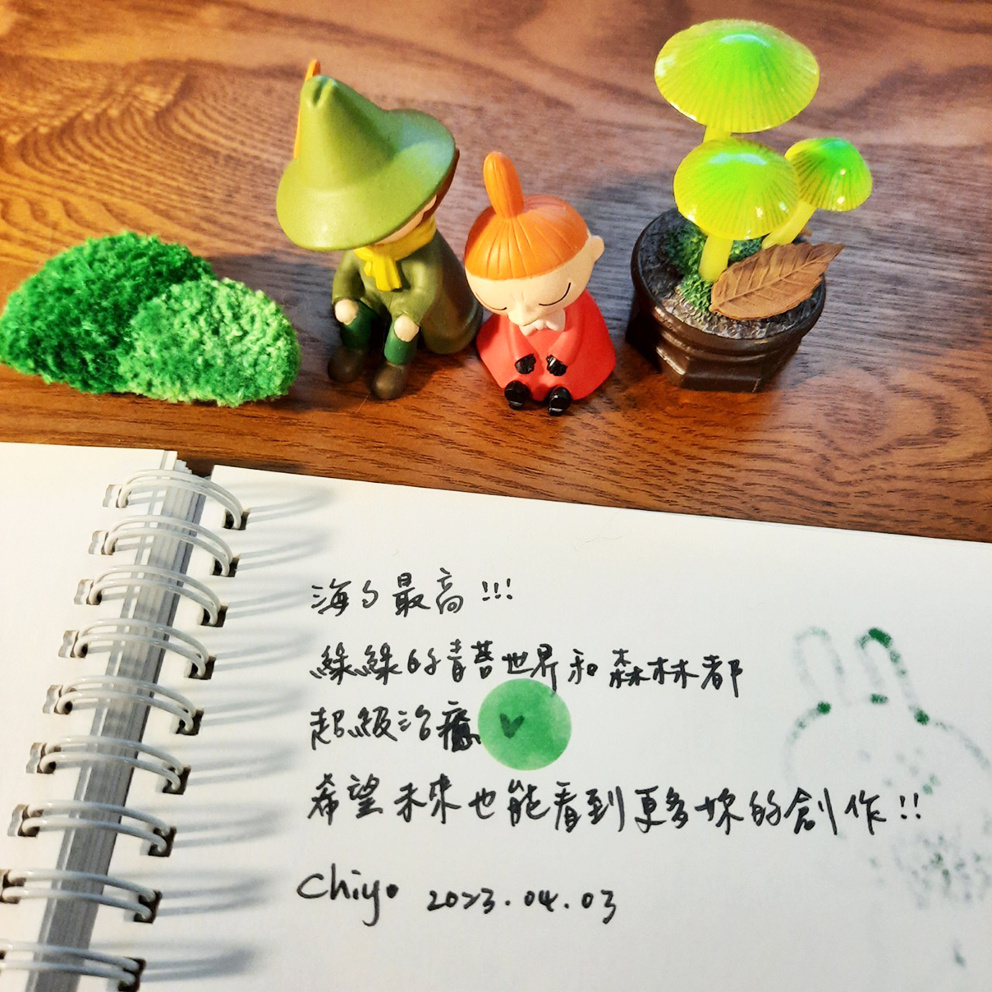 海乃最高!!!
綠綠的青苔世界和森林都
超級治癒
希望未來也能看到更多妳的創作!!
Chiyo 2023.04.03